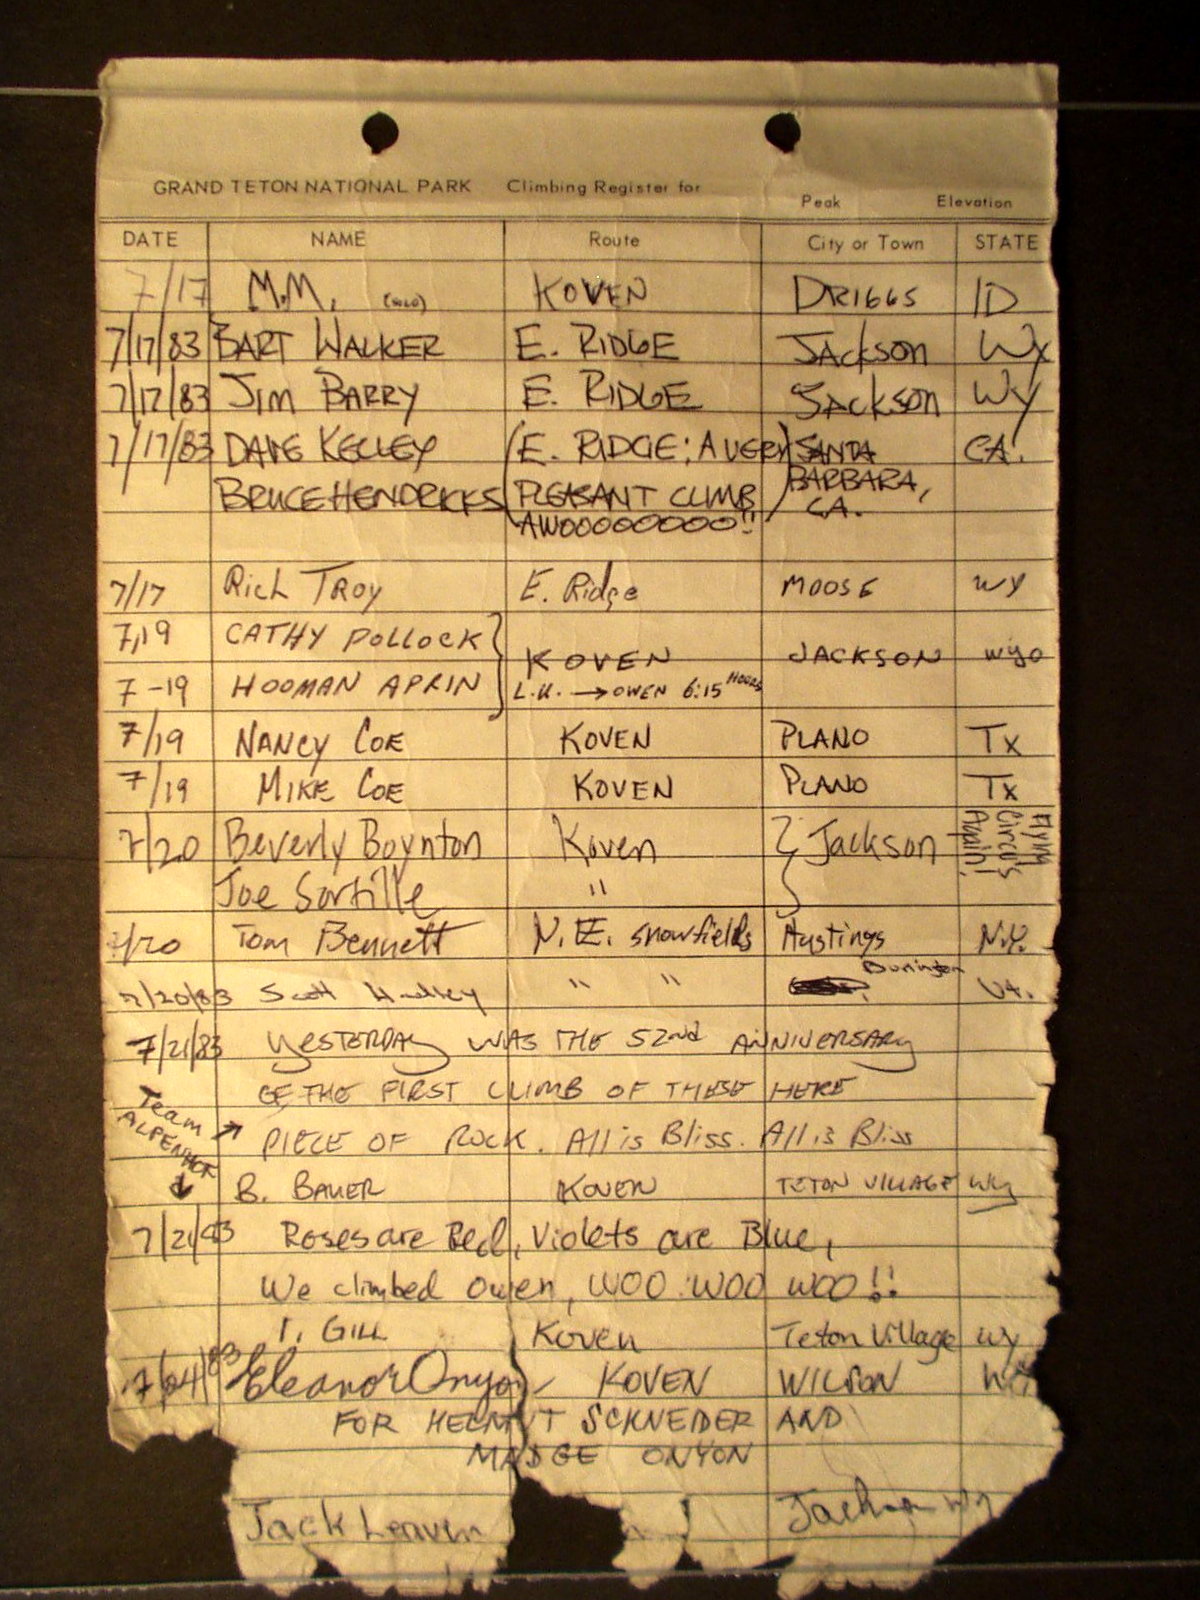 GRAND TETON NATIONAL PARK Climbing Register for
Peak Elevation
DATE NAME Route City or Town STATE
7/17 M.M. (SOLO) KOVEN DRIGGS ID
7/17/83 BART WALKER E. RIDGE JACkson Wy
7/17/83 JIM BARRY E. RIDGE JACkson Wy
7/17/83 DAVE KELLEY (E. RIDGE; A VERY) SANTA CA.
BRUCE HENDRICKS PLEASANT CLIMB, BARBARA,
AWOOOOOOOO!! CA.
7/17 Rich TROY E. Ridge MOOSE WY
7/19 CATHY POLLOCK
KOVEN JACKSON wyo
7-19 HOOMAN APRIN L.U. → OWEN 6:15 HOURS
7/19 NANCY COE KOVEN PLANO TX
7/19 MIKE COE KOVEN PLANO TX
7/20 Beverly Boynton Koven Jackson Flyin Circus Again!
Joe Sottile "
7/20 Tom Bennett N.E. snowfields Hastings N.Y.
7/20/83 Scott " " Vt.
7/21/83 YESTERDAY WAS THE 52nd ANNIVERSARY
OF THE FIRST CLIMB OF THESE HERE
Team ALPENHOF → PIECE OF ROCK. All is Bliss. All is Bliss
B. BAUER KOVEN TETON VILLAGE Wy
7/21/83 Roses are Red, Violets are Blue,
We climbed Owen, WOO WOO WOO!!
GILL Koven Teton Village WY
7/24/83 Eleanor Onyon KOVEN WILSON WY
FOR HELMUT SCHNEIDER AND
MADGE ONYON
Jack Jackson Wy